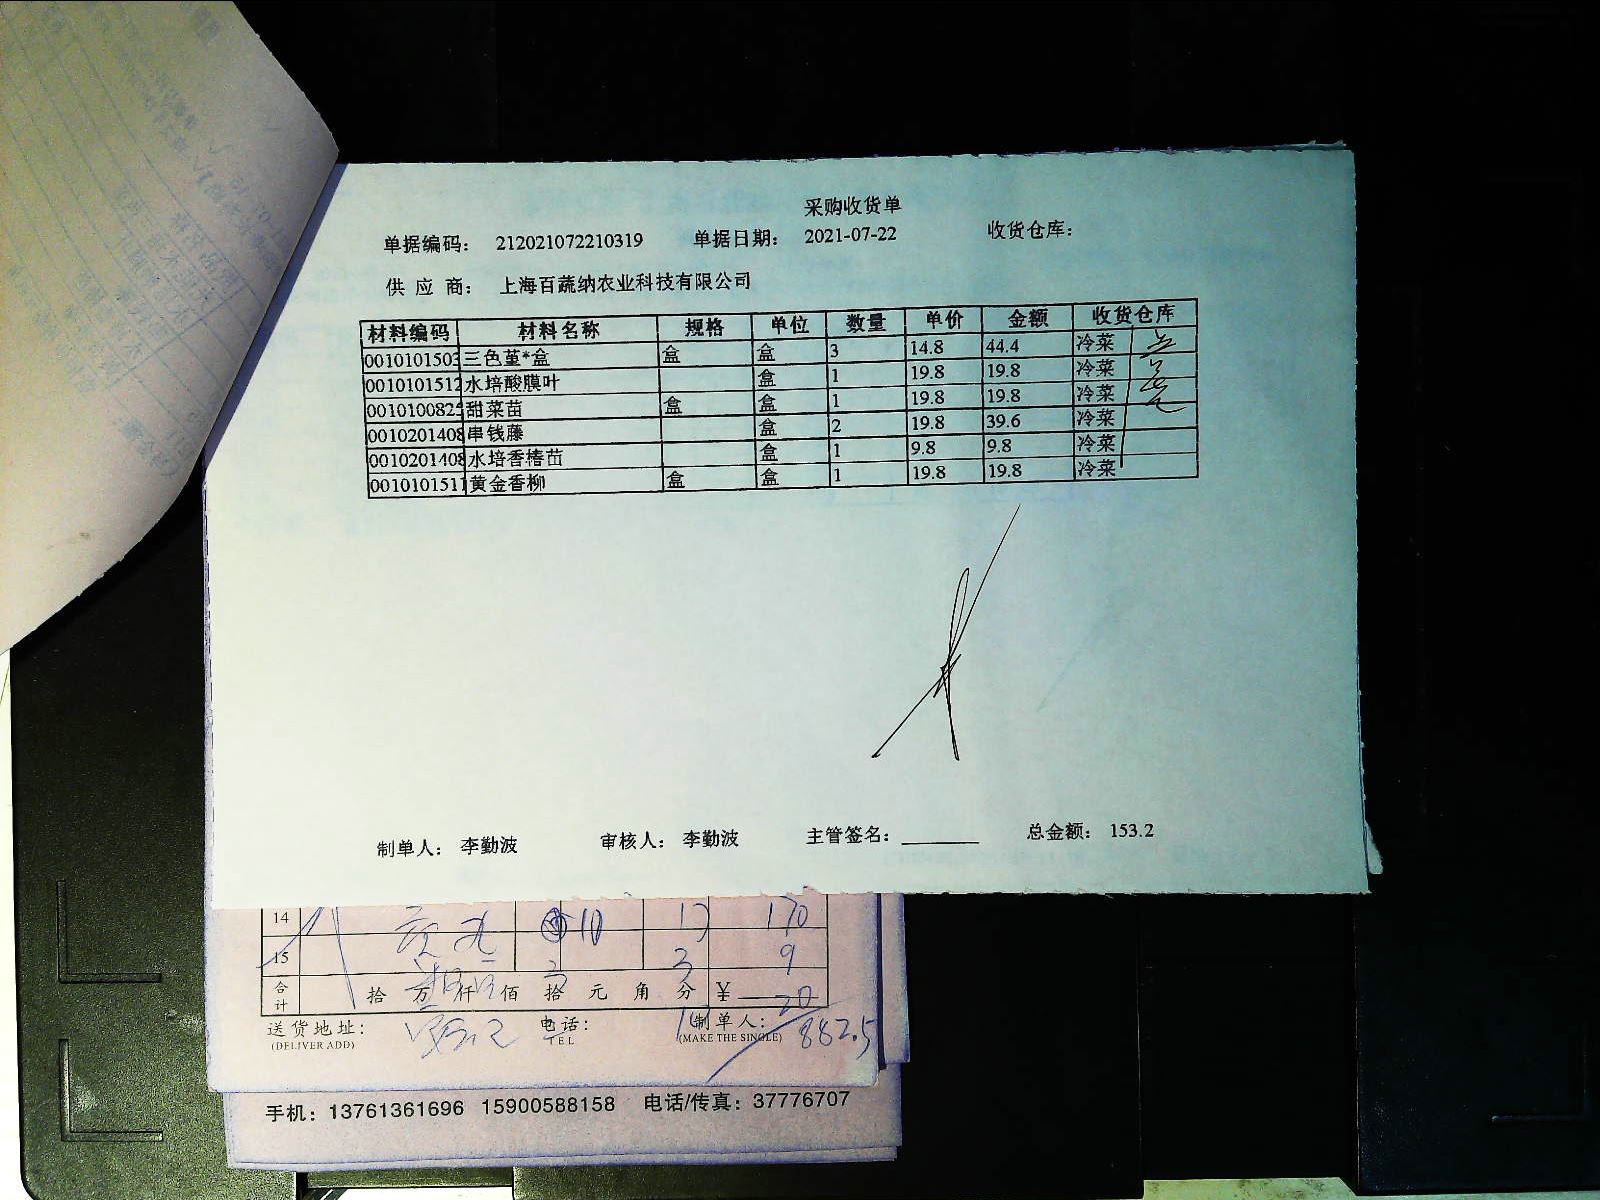 采购收货单
单据编码： 212021072210319 单据日期： 2021-07-22 收货仓库：
供 应 商： 上海百蔬纳农业科技有限公司
材料编码 材料名称 规格 单位 数量 单价 金额 收货仓库
0010101503 三色堇*盒 盒 盒 3 14.8 44.4 冷菜
0010101512 水培酸膜叶 盒 1 19.8 19.8 冷菜
001010082 甜菜苗 盒 盒 1 19.8 19.8 冷菜
0010201408 串钱藤 盒 2 19.8 39.6 冷菜
0010201408 水培香椿苗 盒 1 9.8 9.8 冷菜
0010101511 黄金香柳 盒 盒 1 19.8 19.8 冷菜
制单人： 李勤波 审核人： 李勤波 主管签名： 总金额： 153.2
14 10 17 170
15 3 3 9
合计 拾 万 仟 佰 拾 元 角 分 ¥ 20
送货地址： 电话： 制单人： 882.5
(DELIVER ADD) TEL (MAKE THE SINGLE)
手机：13761361696 15900588158 电话/传真：37776707